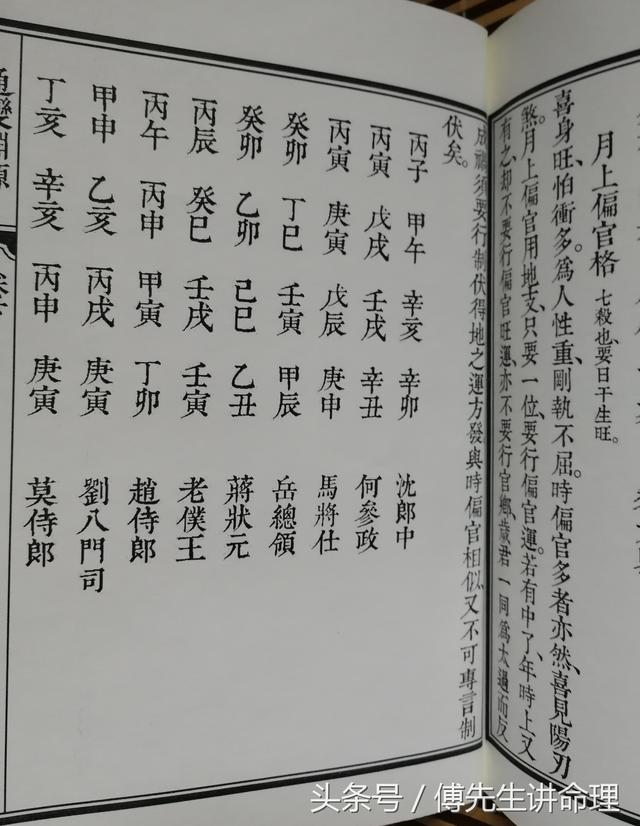 月上偏官格 七殺也、要日干生旺。
喜身旺、怕衝多。爲人性重、剛執不屈。時偏官多者亦然、喜見陽刃
煞。月上偏官用地支、只要一位、要行偏官運。若有中了、年時上又
有之、却不要行偏官旺運、亦不要行官鄉、歲君一同爲太過而反
成禍、須要行制伏得地之運方發與時偏官相似、又不可專言制
伏矣。
丙子 甲午 辛亥 辛卯 沈郎中
丙寅 戊戌 壬戌 辛丑 何參政
丙寅 庚寅 戊辰 庚申 馬將仕
癸卯 丁巳 壬寅 甲辰 岳總領
癸卯 乙卯 己巳 乙丑 蔣狀元
丙辰 癸巳 壬戌 壬寅 老僕王
丙午 丙申 甲寅 丁卯 趙侍郎
甲申 乙亥 丙戌 庚寅 劉八門司
丁亥 辛亥 丙申 庚寅 莫侍郎
淵源
头条号 / 傅先生讲命理